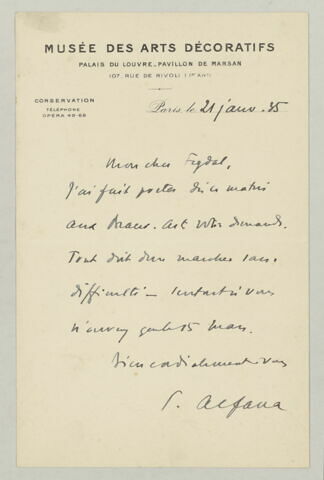 MUSÉE DES ARTS DÉCORATIFS
PALAIS DU LOUVRE_PAVILLON DE MARSAN
107, RUE DE RIVOLI (1er ARRt)
CONSERVATION
TÉLÉPHONE
OPÉRA 49-68
Paris, le 21 janv. 35
Mon cher
J'ai fait porter dès ce matin
aux votre demande.
Tout doit donc marcher sans
difficulté _ vous
n'avez que le 15 Mars.
Bien cordialement à vous